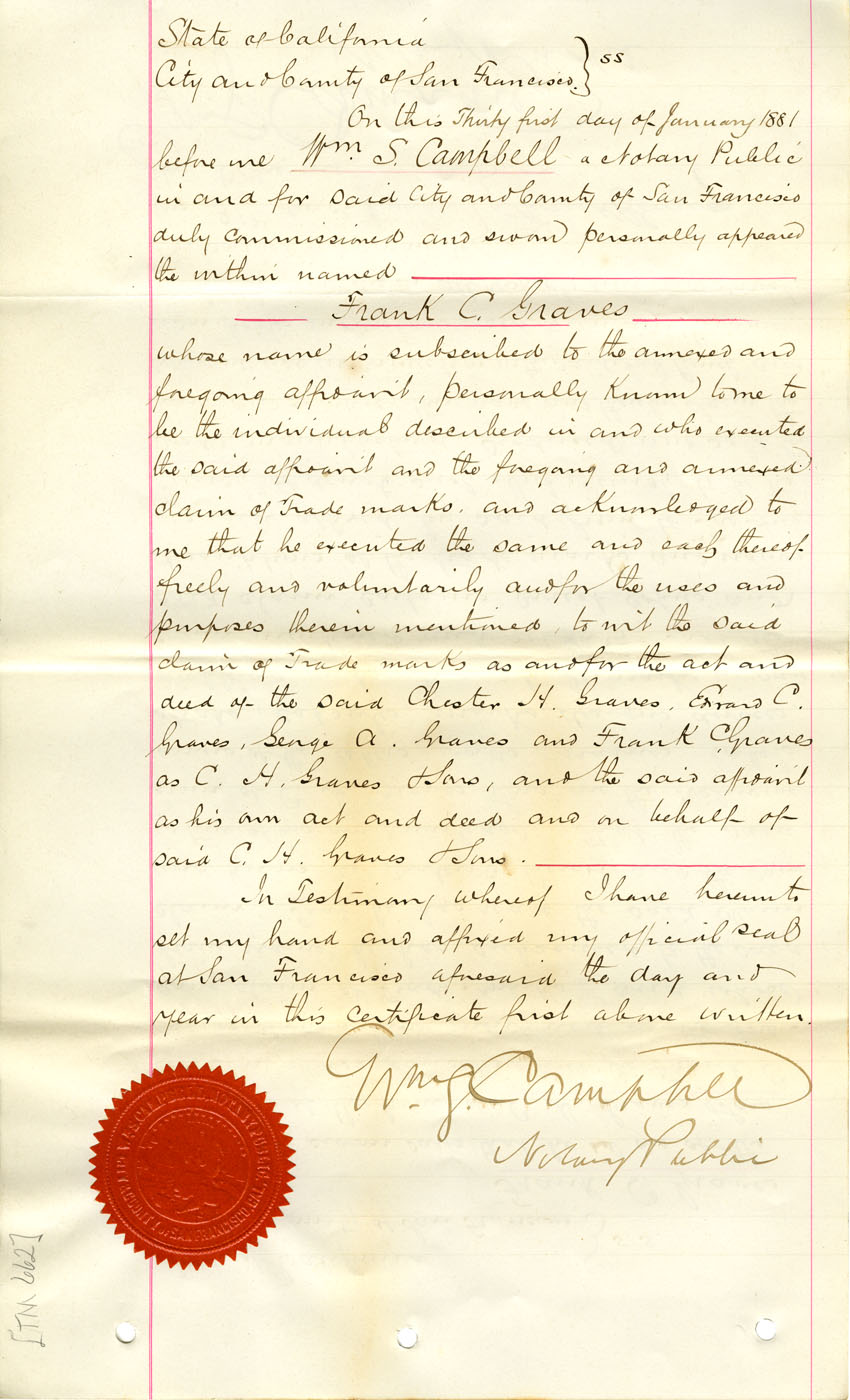 State of California
City and County of San Francisco } ss
On this Thirty first day of January 1881
before me Wm S. Campbell a Notary Public
in and for said City and County of San Francisco
duly commissioned and sworn personally appeared
the within named
Frank C. Graves
whose name is subscribed to the annexed and
foregoing affidavit, personally known to me to
be the individual described in and who executed
the said affidavit and the foregoing and annexed
claim of Trade marks. and acknowledged to
me that he executed the same and each thereof
freely and voluntarily and for the uses and
purposes therein mentioned, to wit the said
claim of Trade marks as and for the act and
deed of the said Chester H. Graves, Edward C.
Graves, George A. Graves and Frank C. Graves
as C. H. Graves & Sons, and the said affidavit
as his own act and deed and on behalf of
said C. H. Graves & Sons.
In Testimony whereof I have hereunto
set my hand and affixed my official seal
at San Francisco aforesaid the day and
year in this certificate first above written.
Wm. S. Campbell
Notary Public
WM. S. CAMPBELL NOTARY PUBLIC
CITY & COUNTY OF SAN FRANCISCO
[TM 662]